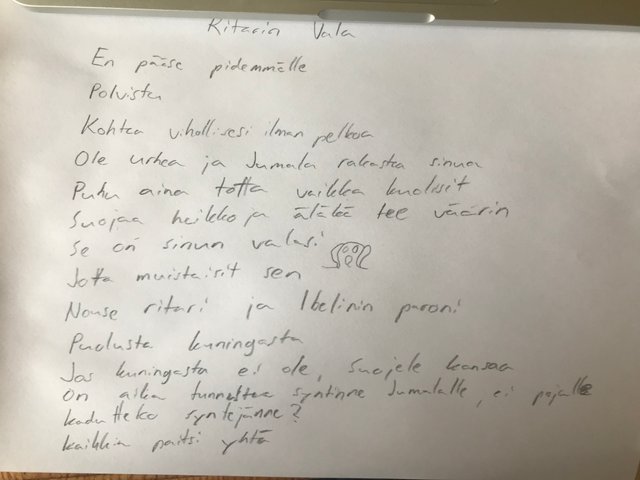 Ritarin Vala
En pääse pidemmälle
Polvistu
Kohtaa vihollisesi ilman pelkoa
Ole urhea ja Jumala rakastaa sinua
Puhu aina totta vaikka kuolisit
Suojaa heikkoja äläkä tee väärin
Se on sinun valasi
Jotta muistaisit sen
Nouse ritari ja Ibelinin paroni
Puolusta kuningasta
Jos kuningasta ei ole, suojele kansaa
On aika tunnustaa syntinne Jumalalle, ei pojalle
kadutteko syntejänne?
kaikkia paitsi yhtä